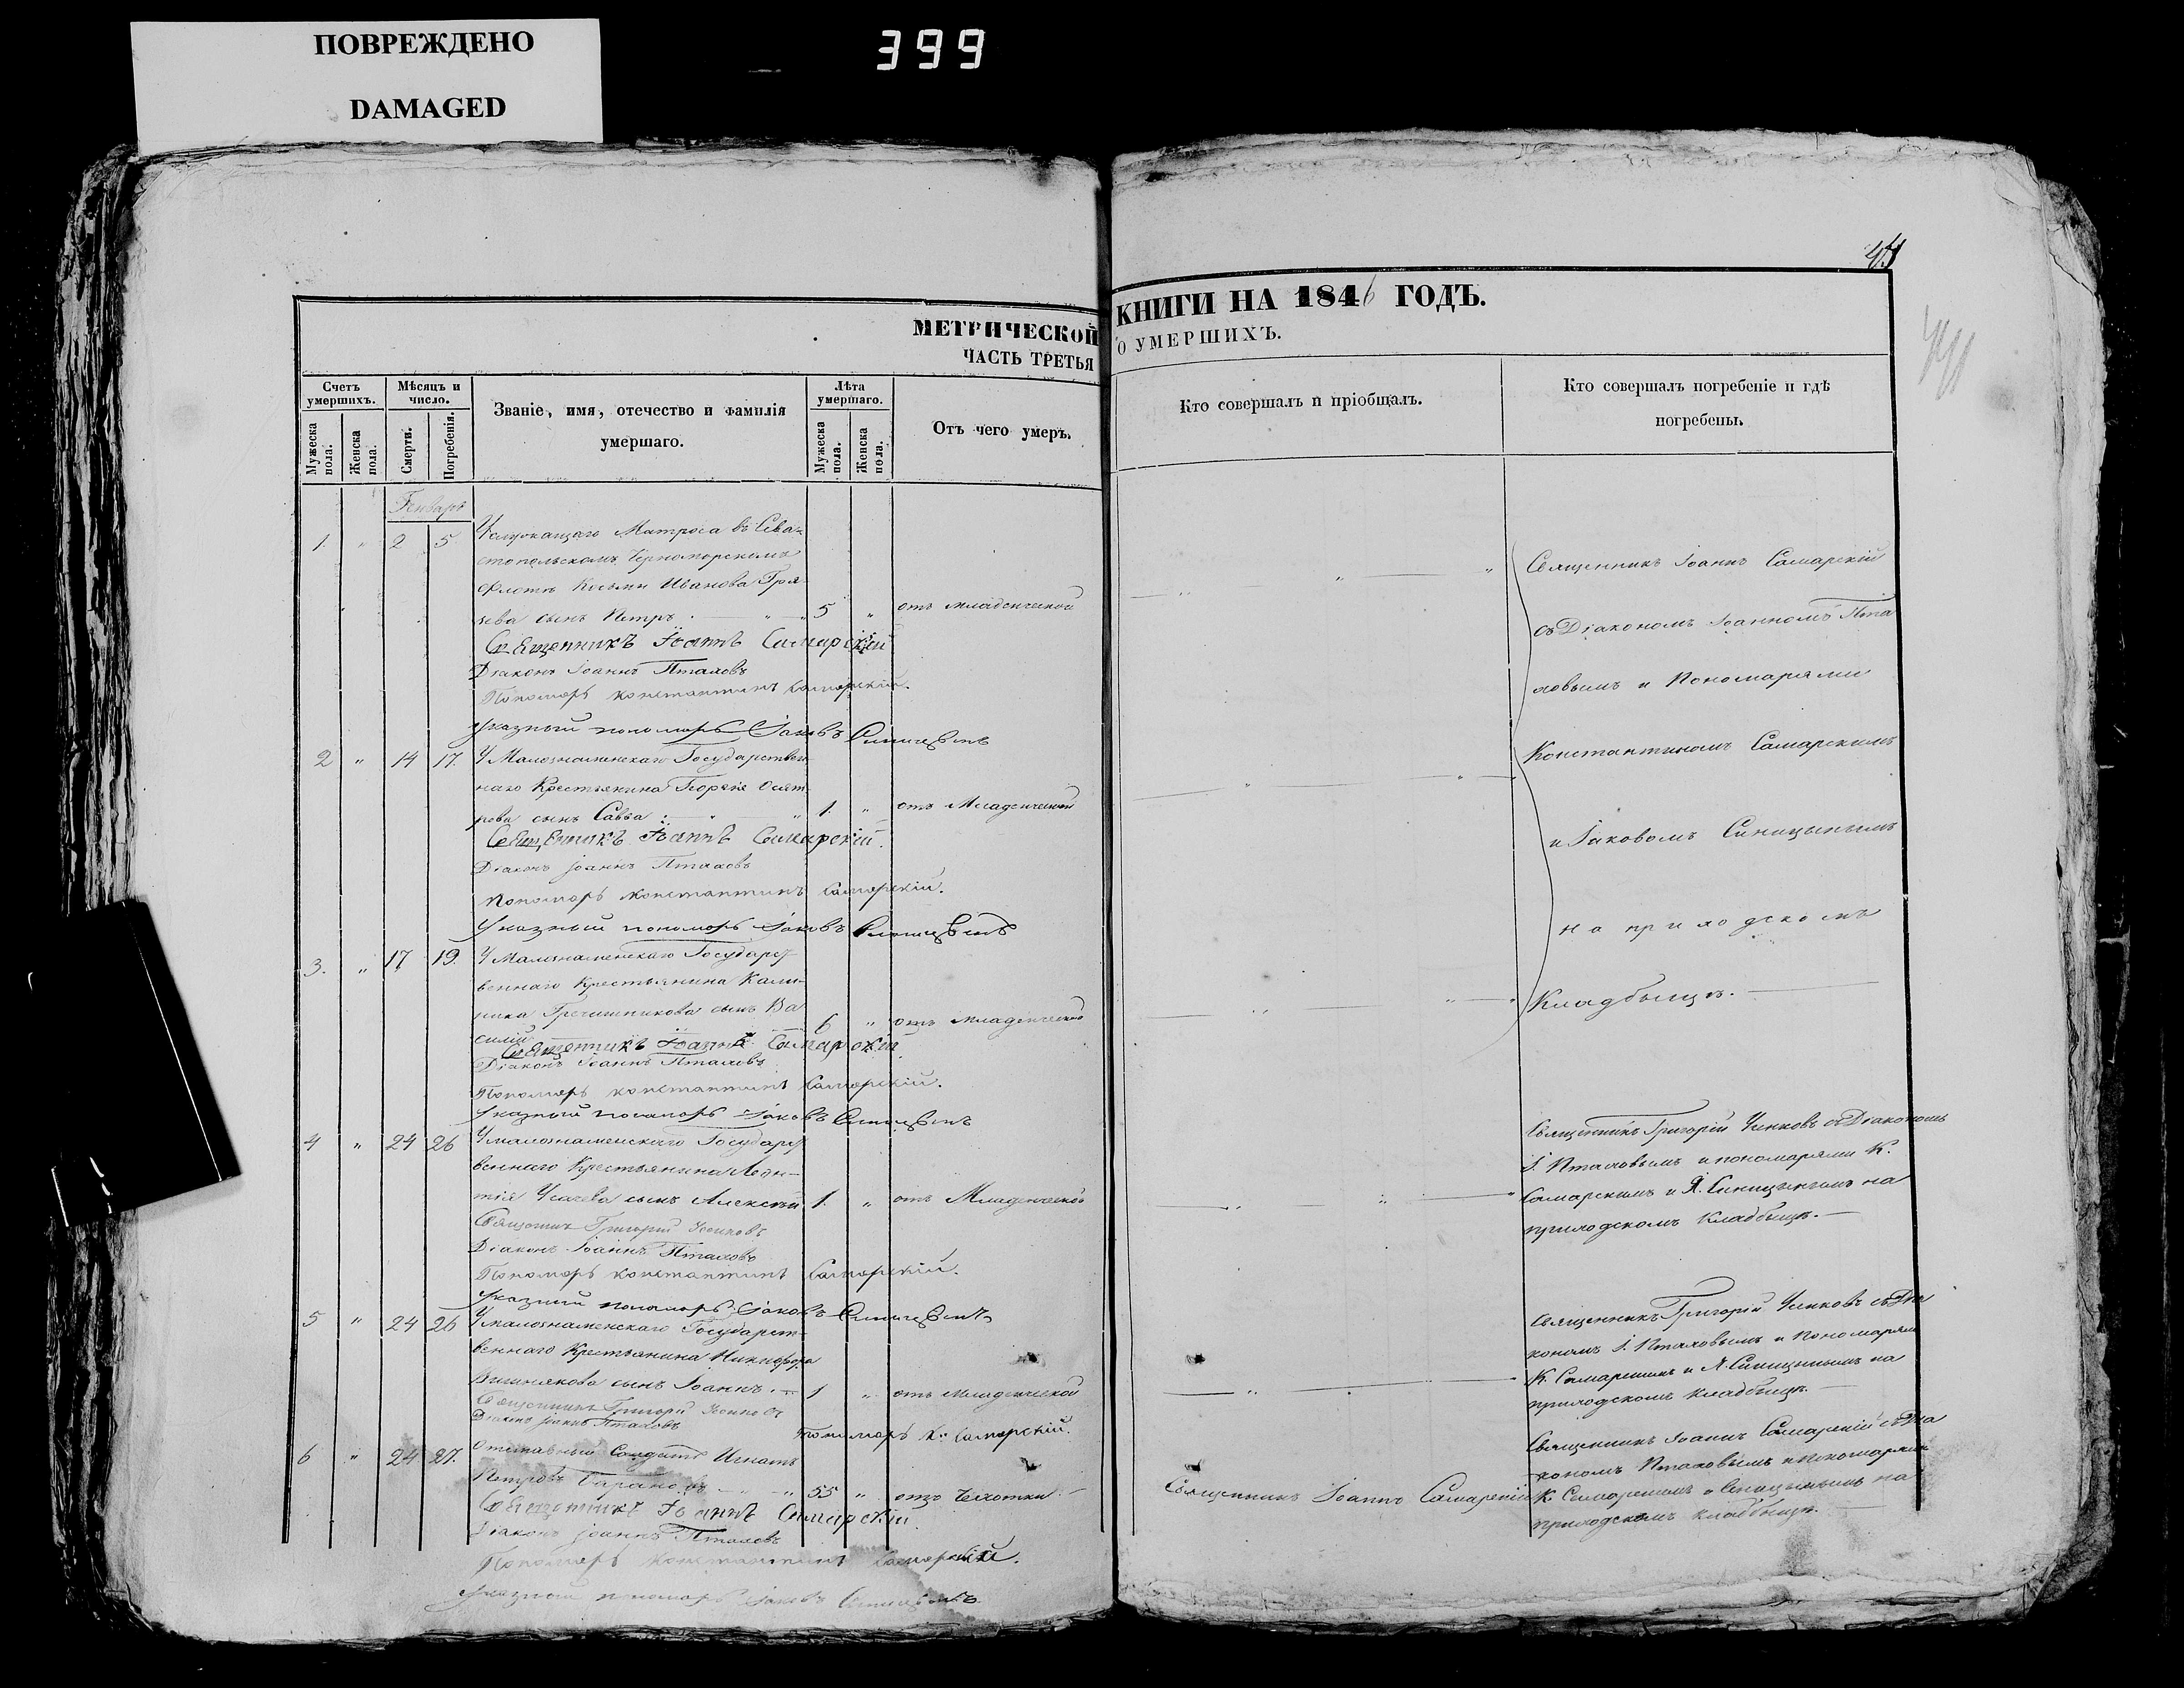 ПОВРЕЖДЕНО
DAMAGED
399
МЕТРИЧЕСКОЙ
ЧАСТЬ ТРЕТЬЯ
Счетъ умершихъ.
Мужеска пола.
Женска пола.
Мѣсяцъ и число.
Смерти.
Погребенія.
Званіе, имя, отечество и фамилія
умершаго.
Лѣта умершаго.
Мужеска пола.
Женска пола.
Отъ чего умеръ.
Генварь
1. " 2 5 Служащаго Матроса въ Сева-
стопольскомъ Черноморскомъ
Флотѣ Козьмы Иванова
сынъ Петръ . " " 5 " отъ младенческой
Священникъ Іоаннъ Самарскій
Діаконъ Іоаннъ Пталовъ
Пономарь Константинъ Самарскій.
Указный пономарь Іаковъ Синицынъ
2 " 14 17. У Малознаменскаго Государствен-
наго Крестьянина Георгія
сынъ Савва : " " 1. " отъ Младенческой
Священникъ Іоаннъ Самарскій.
Діаконъ Іоаннъ Пталовъ
Пономарь Константинъ Самарскій.
Указный пономарь Іаковъ Синицынъ
3. " 17 19. У Малознаменскаго Государст-
веннаго Крестьянина Кали-
ника Гречишникова сынъ Ва
силій 6 " отъ младенческой
Священникъ Іоаннъ Самарскій.
Діаконъ Іоаннъ Пталовъ
Пономарь Константинъ Самарскій.
Указный пономарь Іаковъ Синицынъ
4 " 24 26 У малознаменскаго Государст-
веннаго Крестьянина Леон-
тія Усачева сынъ Алексѣй 1. " отъ Младенческой
Священникъ Григорій
Діаконъ Іоаннъ Пталовъ
Пономарь Константинъ Самарскій.
Указный пономарь Іаковъ Синицынъ
5 " 24 26 У малознаменскаго Государст-
веннаго Крестьянина Никифора
Вишнякова сынъ Іоаннъ . 1 " отъ Младенческой
Священникъ Григорій
Діаконъ Іоаннъ Пталовъ
Пономарь К. Самарскій.
6 " 24 27. Отставный Солдатъ Игнатъ
Петровъ Барановъ " " 55 " отъ Чахотки.
Священникъ Іоаннъ Самарскій.
Діаконъ Іоаннъ Пталовъ
Пономарь Константинъ Самарскій.
Указный пономарь Іаковъ Синицынъ
КНИГИ НА 1846 ГОДЪ.
О УМЕРШИХЪ.
Кто совершалъ и пріобщалъ.
Кто совершалъ погребеніе и гдѣ
погребены.
Священникъ Іоаннъ Самарскій
съ Діакономъ Іоанномъ Пта
ловымъ и Пономарями
Константиномъ Самарскимъ
и Іаковомъ Синицынымъ
на приходскомъ
Кладбищѣ.
Священникъ Григорій съ Діакономъ
І. Пталовымъ и пономарями К.
Самарскимъ и Я. Синицынымъ на
приходскомъ Кладбищѣ.
Священникъ Григорій съ Діа
кономъ І. Пталовымъ и Пономарями
К. Самарскимъ и Я. Синицынымъ на
приходскомъ кладбищѣ.
Священникъ Іоаннъ Самарскій
Священникъ Іоаннъ Самарскій съ Діа
кономъ Пталовымъ и пономарями
К. Самарскимъ и Синицынымъ на
приходскомъ кладбищѣ.